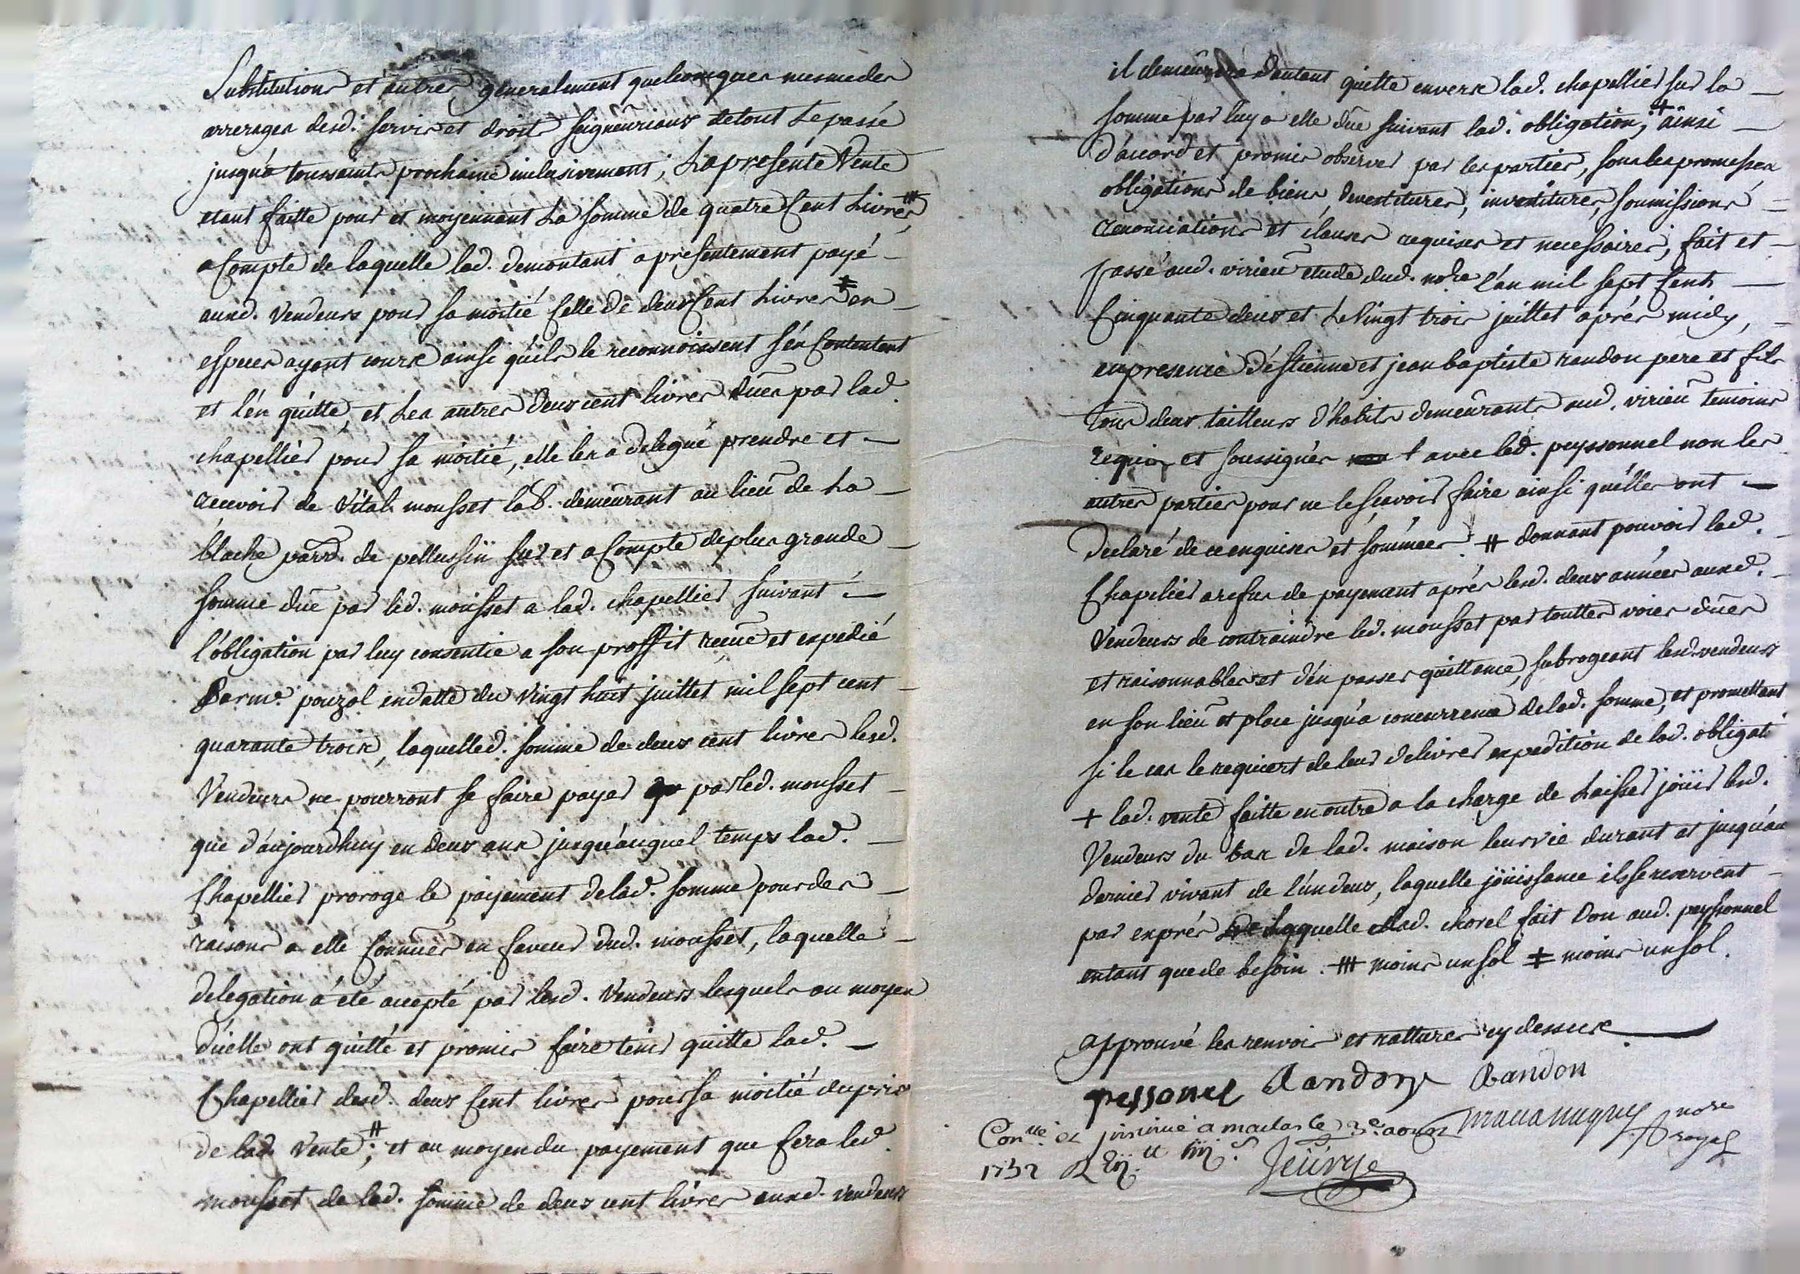 Substitutions et autres generalement quelconques mesme des
arrerages desd. servis et droits seigneuriaux de tout le passé
jusqu'a toussaints prochaine inclusivement; La presente Vente
etant faitte pour et moyennant La somme de quatre Cent Livres #,
a Compte de laquelle led. demontant a presentement payé
auxd. Vendeurs pour sa moitié Celle de deux Cent Livres ǂ en
especes ayant cours ainsi qu'ils le reconnoissent s'en Contentent
et l'en quitte, et Les autres Deux cent livres dües par lad.
chapellier pour sa moitié, elle les a delegué prendre et
recevoir de Vital mousset lab. demeurant au lieu de La
blache parr. de pellussin sur et a Compte de plus grande
somme düe par led. mousset a lad. chapellier suivant
l'obligation par luy consentie a son proffit recüe et expedié
Par me. pouzol en datte du vingt huit juillet mil sept cent
quarante trois, laquelle d. somme de deux cent livres lesd.
Vendeurs ne pourront se faire payer par led. mousset
que d'aujourdhuy en deux ans jusqu'auquel temps lad.
Chapellier proroge le payement de lad. somme pour des
raisons a elle Connües en faveur dud. mousset, laquelle
delegation a été accepté par lesd. Vendeurs lesquels au moyen
d'icelle ont quitté et promis faire tenir quitte lad.
Chapellier desd. deux Cent livres pour sa moitié du prix
de lad. Vente #; et au moyen du payement que fera led.
mousset de lad. somme de deux cent livres auxd. vendeurs
il demeurera d'autant quitte envers lad. chapellier sur la
somme par luy a elle düe suivant lad. obligation; + ainsi
d'accord et promis observer par les parties, sous les promesses
obligations de biens devestitures, investitures, soumissions
renonciations et clauses requises et necessaires, fait et
passé aud. virieu etude dud. nore l'an mil sept Cent
Cinquante deux et Le Vingt trois juillet aprés midy,
en presence d'estienne et jean baptiste randon pere et fils
tous deux tailleurs d'habits demeurants aud. virieu temoins
requis et soussignés avec led. peyssonnel non les
autres parties pour ne le sçavoir faire ainsi qu'elles ont
declaré de ce enquises et sommées. # donnant pouvoir lad.
Chapelier a refus de payement aprés lesd. deux années auxd.
Vendeurs de contraindre led. mousset par touttes voies dües
et raisonnables et d'en passer quittance, subrogeant lesd. vendeurs
en son lieu et place jusqu'a concurrence de lad. somme, et promettant
si le cas le requiert de leur delivrer expedition de lad. obligat
+ lad. vente faitte en outre a la charge de Laisser joüir lesd.
Vendeurs du bas de lad. maison leur vie durant et jusqu'au
dernier vivant de l'un deux, laquelle joüissance ils se reservent
par exprés laquelle lad. chorel fait Don aud. peyssonnel
entant que de besoin. # moins un sol ǂ moins un sol.
approuvé les renvois et rattures cy dessus.
pessonel Randon Randon
Conlle et insinué a maclas le 3e aoust
1752
nore
royal